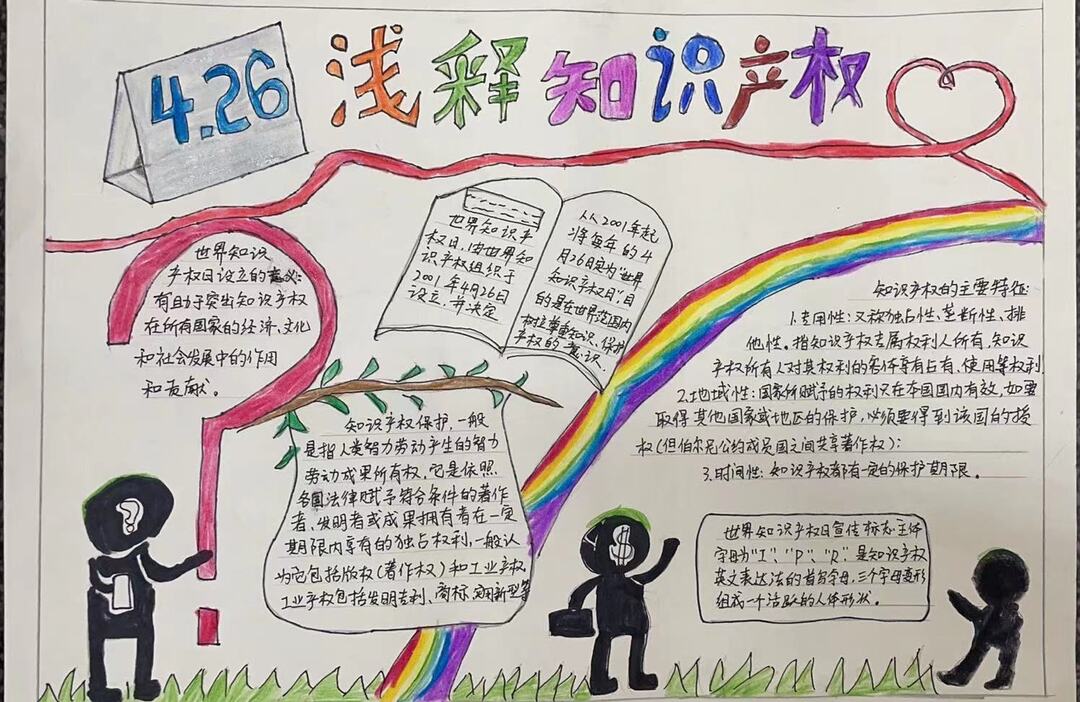 4.26
浅释知识产权
世界知识
产权日设立的意义:
有助于突出知识产权
在所有国家的经济、文化
和社会发展中的作用
和贡献。
世界知识产
权日,由世界知
识产权组织于
2001年4月26日
设立,并决定
从2001年起
将每年的4
月26日定为"世界
知识产权日",目
的是在世界范围内
树立尊重知识、保护
产权的意识
知识产权的主要特征:
1.专用性:又称独占性、垄断性、排
他性。指知识产权专属权利人所有,知识
产权所有人对其权利的客体享有占有、使用等权利
2.地域性:国家所赋予的权利只在本国国内有效,如要
取得其他国家或地区的保护,必须要得到该国的授
权(但伯尔尼公约成员国之间共享著作权);
3.时间性:知识产权都有一定的保护期限。
知识产权保护,一般
是指人类智力劳动产生的智力
劳动成果所有权,它是依照
各国法律赋予符合条件的著作
者、发明者或成果拥有者在一定
期限内享有的独占权利,一般认
为它包括版权(著作权)和工业产权
工业产权包括发明专利、商标、实用新型等
世界知识产权日宣传标志主体
字母为"I"、"P"、"R",是知识产权
英文表达法的首字母,三个字母变形
组成一个活跃的人体形状。
?
$